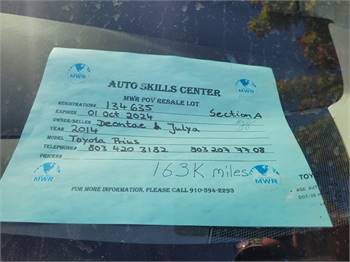 MWR
MWR
AUTO SKILLS CENTER
MWR POV RESALE LOT
REGISTRATION: 134635
EXPIRES 01 Oct 2024 Section A
OWNER/SELLER Deontae & Julya
YEAR 2014
MODEL Toyota Prius
TELEPHONE: 803 420 3182 803 207 7708
PRICE:
163K miles
MWR
MWR
FOR MORE INFORMATION, PLEASE CALL 910-394-2293
TOY